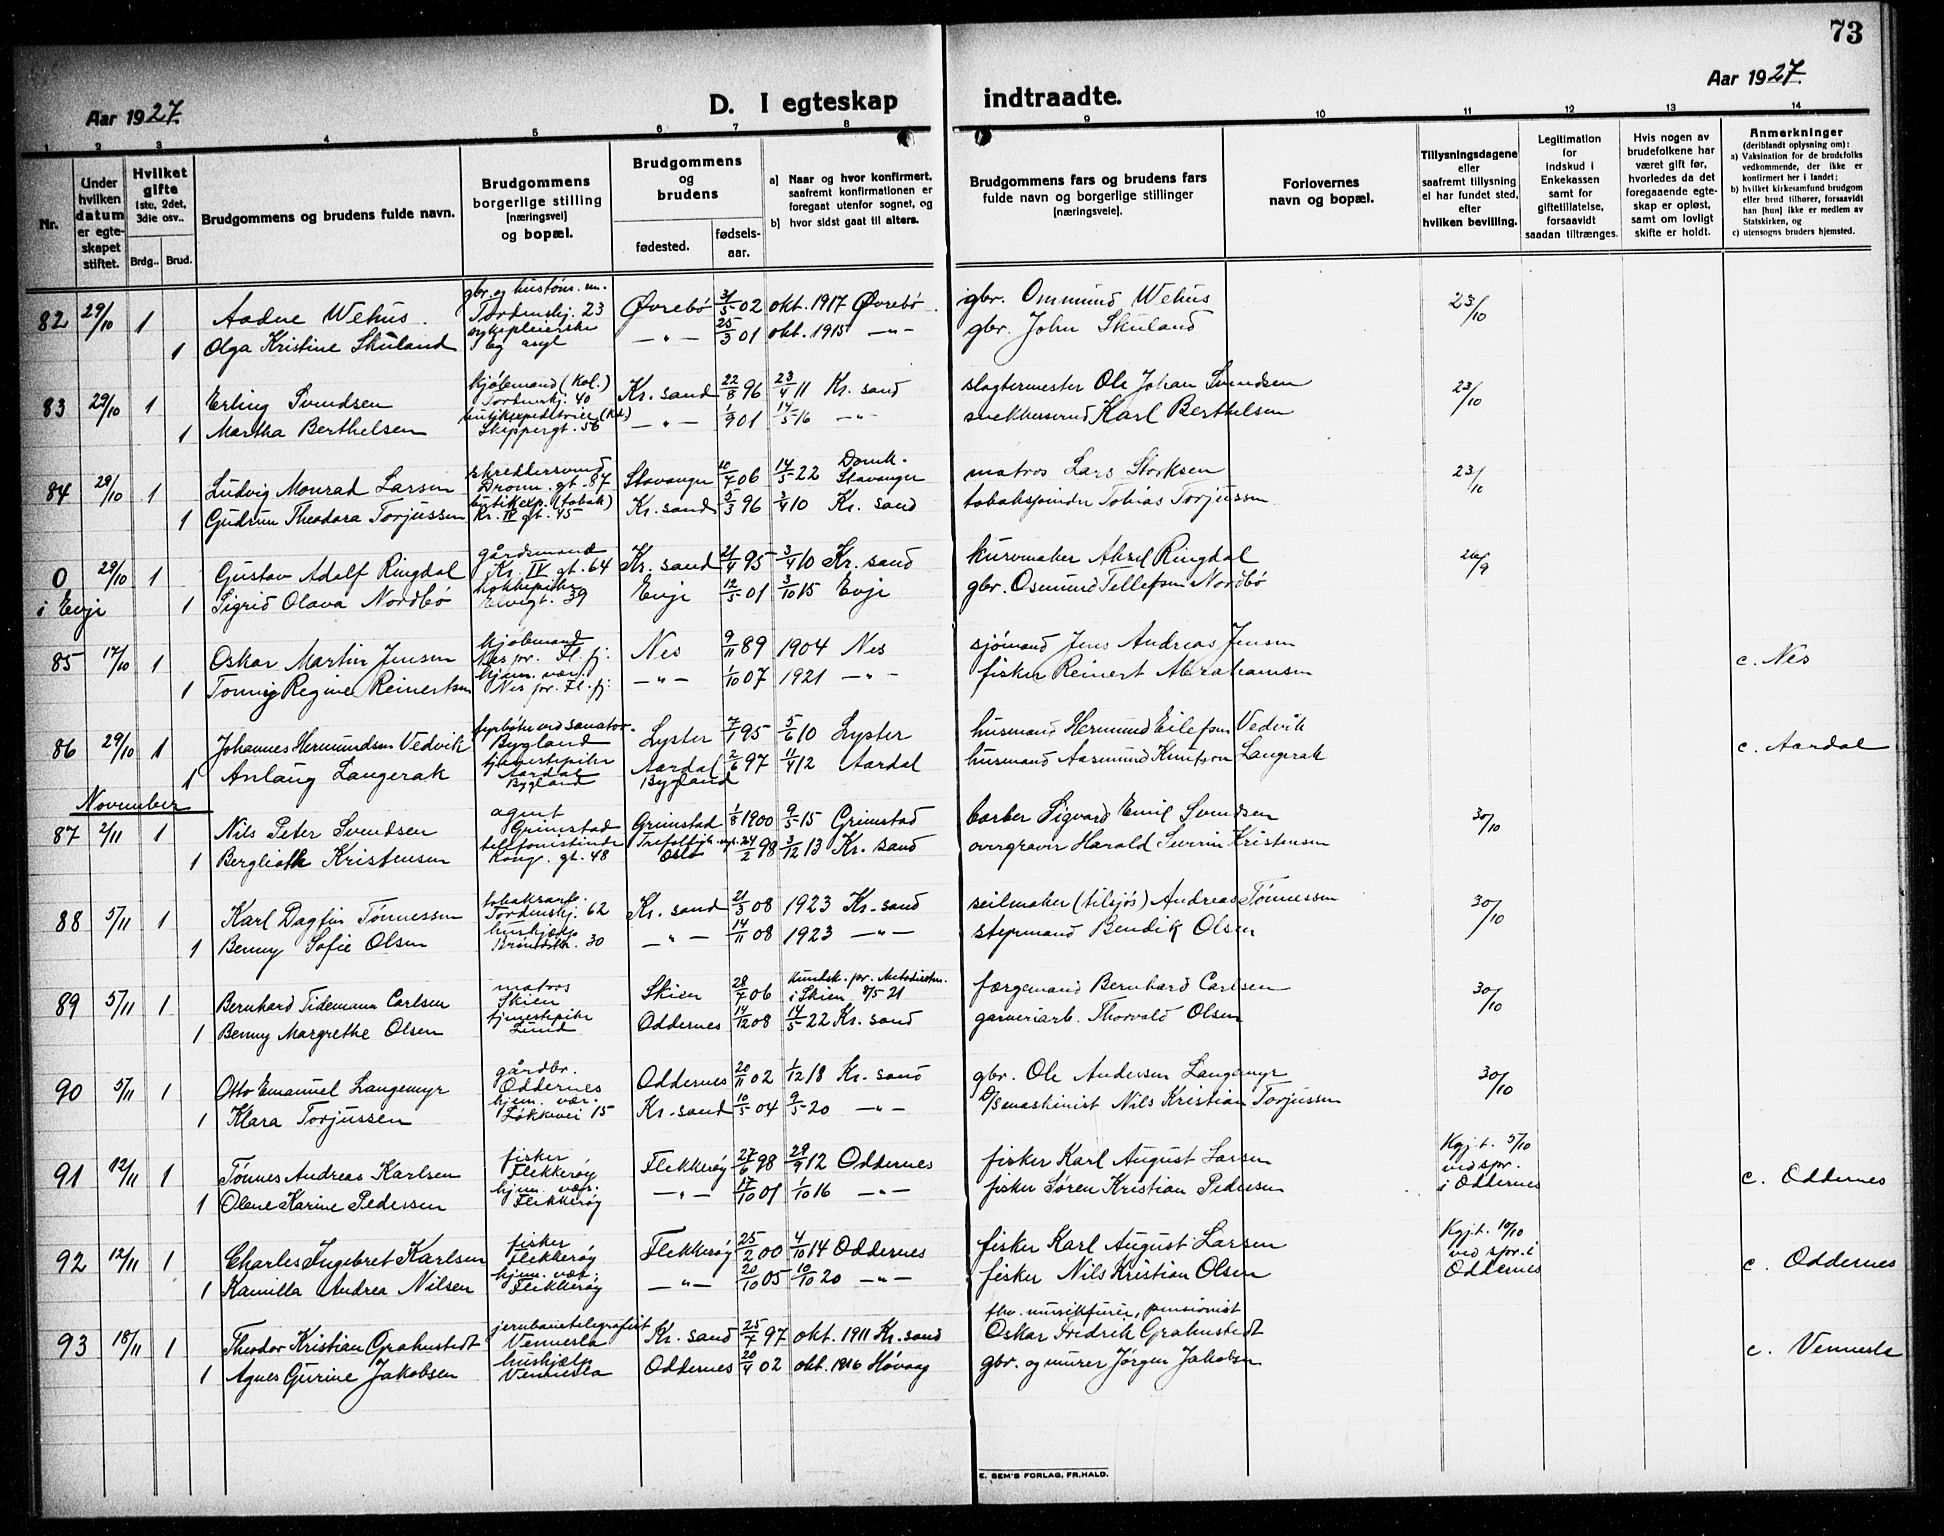 73
Aar 1927. D. I egteskap indtraadte. Aar 1927.
1 2 3 4 5 6 7 8 9 10 11 12 13 14
Nr.
Under hvilken datum er egteskapet stiftet.
Hvilket gifte 1ste, 2det, 3die osv..
Brdg.. Brud.
Brudgommens og brudens fulde navn.
Brudgommens borgerlige stilling [næringsvei] og bopæl.
Brudgommens og brudens
fødested. fødsels-aar.
a) Naar og hvor konfirmert, saafremt konfirmationen er foregaat utenfor sognet, og
b) hvor sidst gaat til alters.
Brudgommens fars og brudens fars fulde navn og borgerlige stillinger [næringsveie].
Forlovernes navn og bopæl.
Tillysningsdagene eller saafremt tillysning ei har fundet sted, efter hvilken bevilling.
Legitimation for indskud i Enkekassen samt for giftetillatelse, forsaavidt saadan tiltrænges.
Hvis nogen av brudefolkene har været gift før, hvorledes da det foregaaende egteskap er opløst, samt om lovligt skifte er holdt.
Anmerkninger
(deriblandt oplysning om):
a) Vaksination for de brudefolks vedkommende, der ikke er konfirmert her i landet;
b) hvilket kirkesamfund brudgom eller brud tilhører, forsaavidt han [hun] ikke er medlem av Statskirken, og
c) utensogns bruders hjemsted.
82 29/10 1 Aadne Wehus. Tordenskj. 23 Øvrebø 31/5 02 okt. 1917 Øvrebø gbr. Ommund Wehus 23/10
1 Olga Kristine Skuland sykepleierske Eg asyl —"— 25/3 01 okt. 1915 —"— gbr. John Skuland
83 29/10 1 Erling Svendsen kjøbmand (kol.) Tordenskj. 40 Kr. sand 22/8 96 23/4 11 Kr. sand slagtermester Ole Johan Svendsen 23/10
1 Martha Berthelsen Skippergt. 56 —"— 1/9 01 14/5 16 —"— snekkersvend Karl Berthelsen
84 29/10 1 Ludvig Monrad Larsen skreddersvend Dronn. gt. 87 Stavanger 10/7 06 14/5 22 Domk. Stavanger matros Lars Storksen 23/10
1 Gudrun Theodora Torjussen butikexp. (tobak) Kr. IV gt. 45 Kr. sand 5/3 96 3/4 10 Kr. sand tobakspinder Tobias Torjussen
0 29/10 1 Gustav Adolf Ringdal gårdsmand Kr. IV gt. 64 Kr. sand 21/4 95 3/4 10 Kr. sand kurvmaker Aksel Ringdal 26/9
i Evje 1 Sigrid Olava Nordbø kokkepike Elvegt. 39 Evje 12/5 01 3/10 15 Evje gbr. Osmund Tellefsen Nordbø
85 17/10 1 Oskar Martin Jensen kjøbmand Nes pr. Fl. fj. Nes 9/11 89 1904 Nes sjømand Jens Andreas Jensen c. Nes
1 Tonny Regine Reinertsen hjem. vær. Nes pr. Fl. fj. —"— 1/10 07 1921 —"— fisker Reinert Abrahamsen
86 29/10 1 Johannes Hermundsen Vedvik fyrbøter ved sanator. Bygland Lyster 7/1 95 5/6 10 Lyster husmand Hermund Eilefsen Vedvik c. Aardal
1 Anlaug Langerak tjenestepike Aardal Bygland Aardal Bygland 2/6 97 11/4 12 Aardal husmand Aasmund Knutson Langerak
November
87 2/11 1 Nils Peter Svendsen agent Grimstad Grimstad 1/8 1900 9/5 15 Grimstad barber Sigvard Emil Svendsen 30/10
1 Berglioth Kristensen telefonistinde Kong. gt. 48 Oslo 24/2 98 3/12 13 Kr. sand overgravir Harald Severin Kristensen
88 5/11 1 Karl Dagfin Tønnessen tobaksarb. Tordenskj. 62 Kr. sand 21/3 08 1923 Kr. sand seilmaker (tilsjøs) Andreas Tønnessen 30/10
1 Benny Sofie Olsen hushjælp 30 —"— 14/11 08 1923 —"— styrmand Bendik Olsen
89 5/11 1 Bernhard Tidemann Carlsen matros Skien Skien 28/7 06 kundsk. pr. Metodistm. i Skien 8/5 21 færgemand Bernhard Carlsen 30/10
1 Benny Margrethe Olsen tjenestepike Lund Oddernes 14/12 08 14/5 22 Kr. sand garveriarb. Thorvald Olsen
90 5/11 1 Otto Emanuel Langemyr gårdbr. Oddernes Oddernes 20/11 02 1/12 18 Kr. sand gbr. Ole Andersen Langemyr 30/10
1 Klara Torjussen hjem. vær. Løkkevei 15 Kr. sand 10/5 04 9/5 20 —"— D/Smaskinist Nils Kristian Torjussen
91 12/11 1 Tønnes Andreas Karlsen fisker Flekkerøy Flekkerøy 27/6 98 29/9 12 Oddernes fisker Karl August Larsen Kgj.t. 5/10 ved spr. i Oddernes c. Oddernes
1 Olene Karine Pedersen hjem. vær. Flekkerøy —"— 17/10 01 1/10 16 —"— fisker Søren Kristian Pedersen
92 12/11 1 Charles Ingebret Karlsen fisker Flekkerøy Flekkerøy 25/2 00 4/10 14 Oddernes fisker Karl August Larsen Kgj.t. 10/10 ved spr. i Oddernes c. Oddernes
1 Kamilla Andrea Nilsen hjem. vær. Flekkerøy —"— 20/10 05 10/10 20 —"— fisker Nils Kristian Olsen
93 18/11 1 Theodor Kristian Grahnstedt jernbanetelegrafist Vennesla Kr. sand 25/7 97 okt. 1911 Kr. sand fhv. musikfurer, pensionist Oskar Fredrik Grahnstedt c. Vennesla
1 Agnes Gurine Jakobsen hushjælp Vennesla Oddernes 20/4 02 okt. 1916 Høvaag gbr. og murer Jørgen Jakobsen
E. SEM'S FORLAG, FR.HALD.